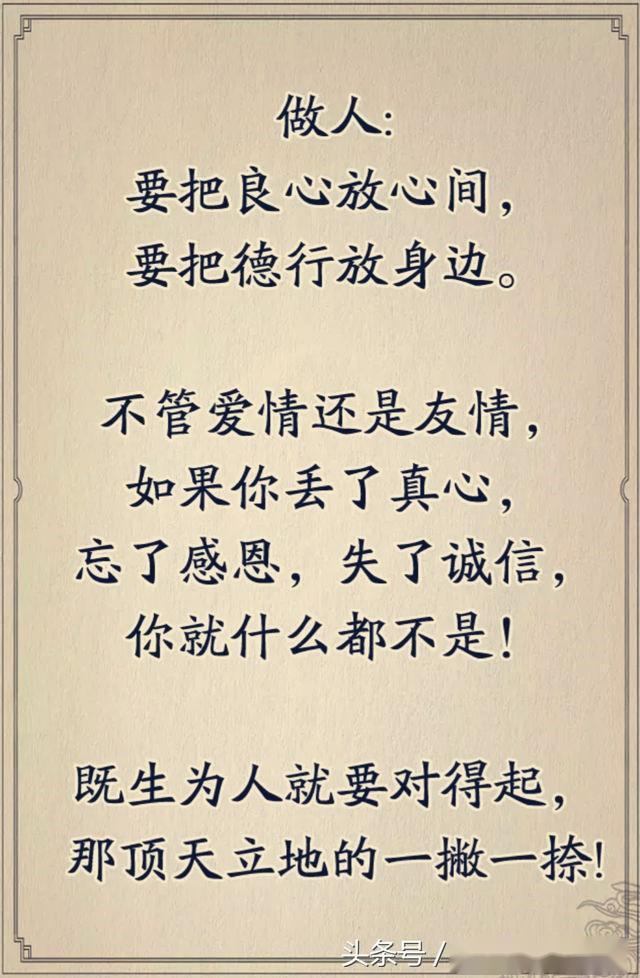 做人:
要把良心放心间,
要把德行放身边。
不管爱情还是友情,
如果你丢了真心,
忘了感恩,失了诚信,
你就什么都不是!
既生为人就要对得起,
那顶天立地的一撇一捺!
头条号 /